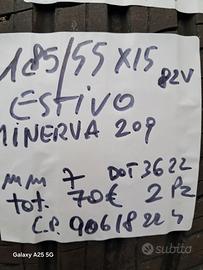 185/55 X15
82V
ESTIVO
MINERVA 209
mm 7 DOT 3622
tot. 70€ 2 Pz
C.P. 90618224
Galaxy A25 5G
subito